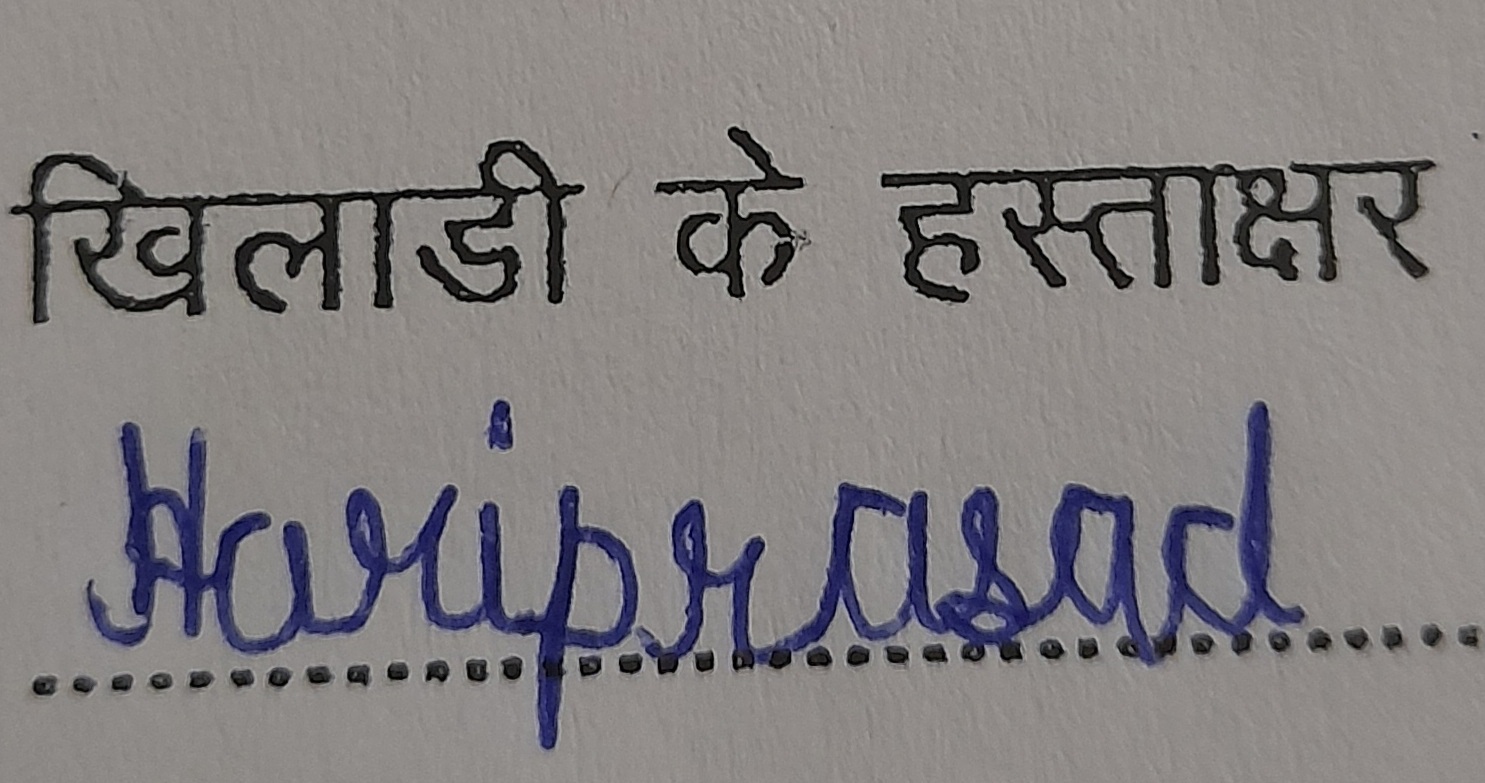 खिलाडी के हस्ताक्षर
Hariprasad